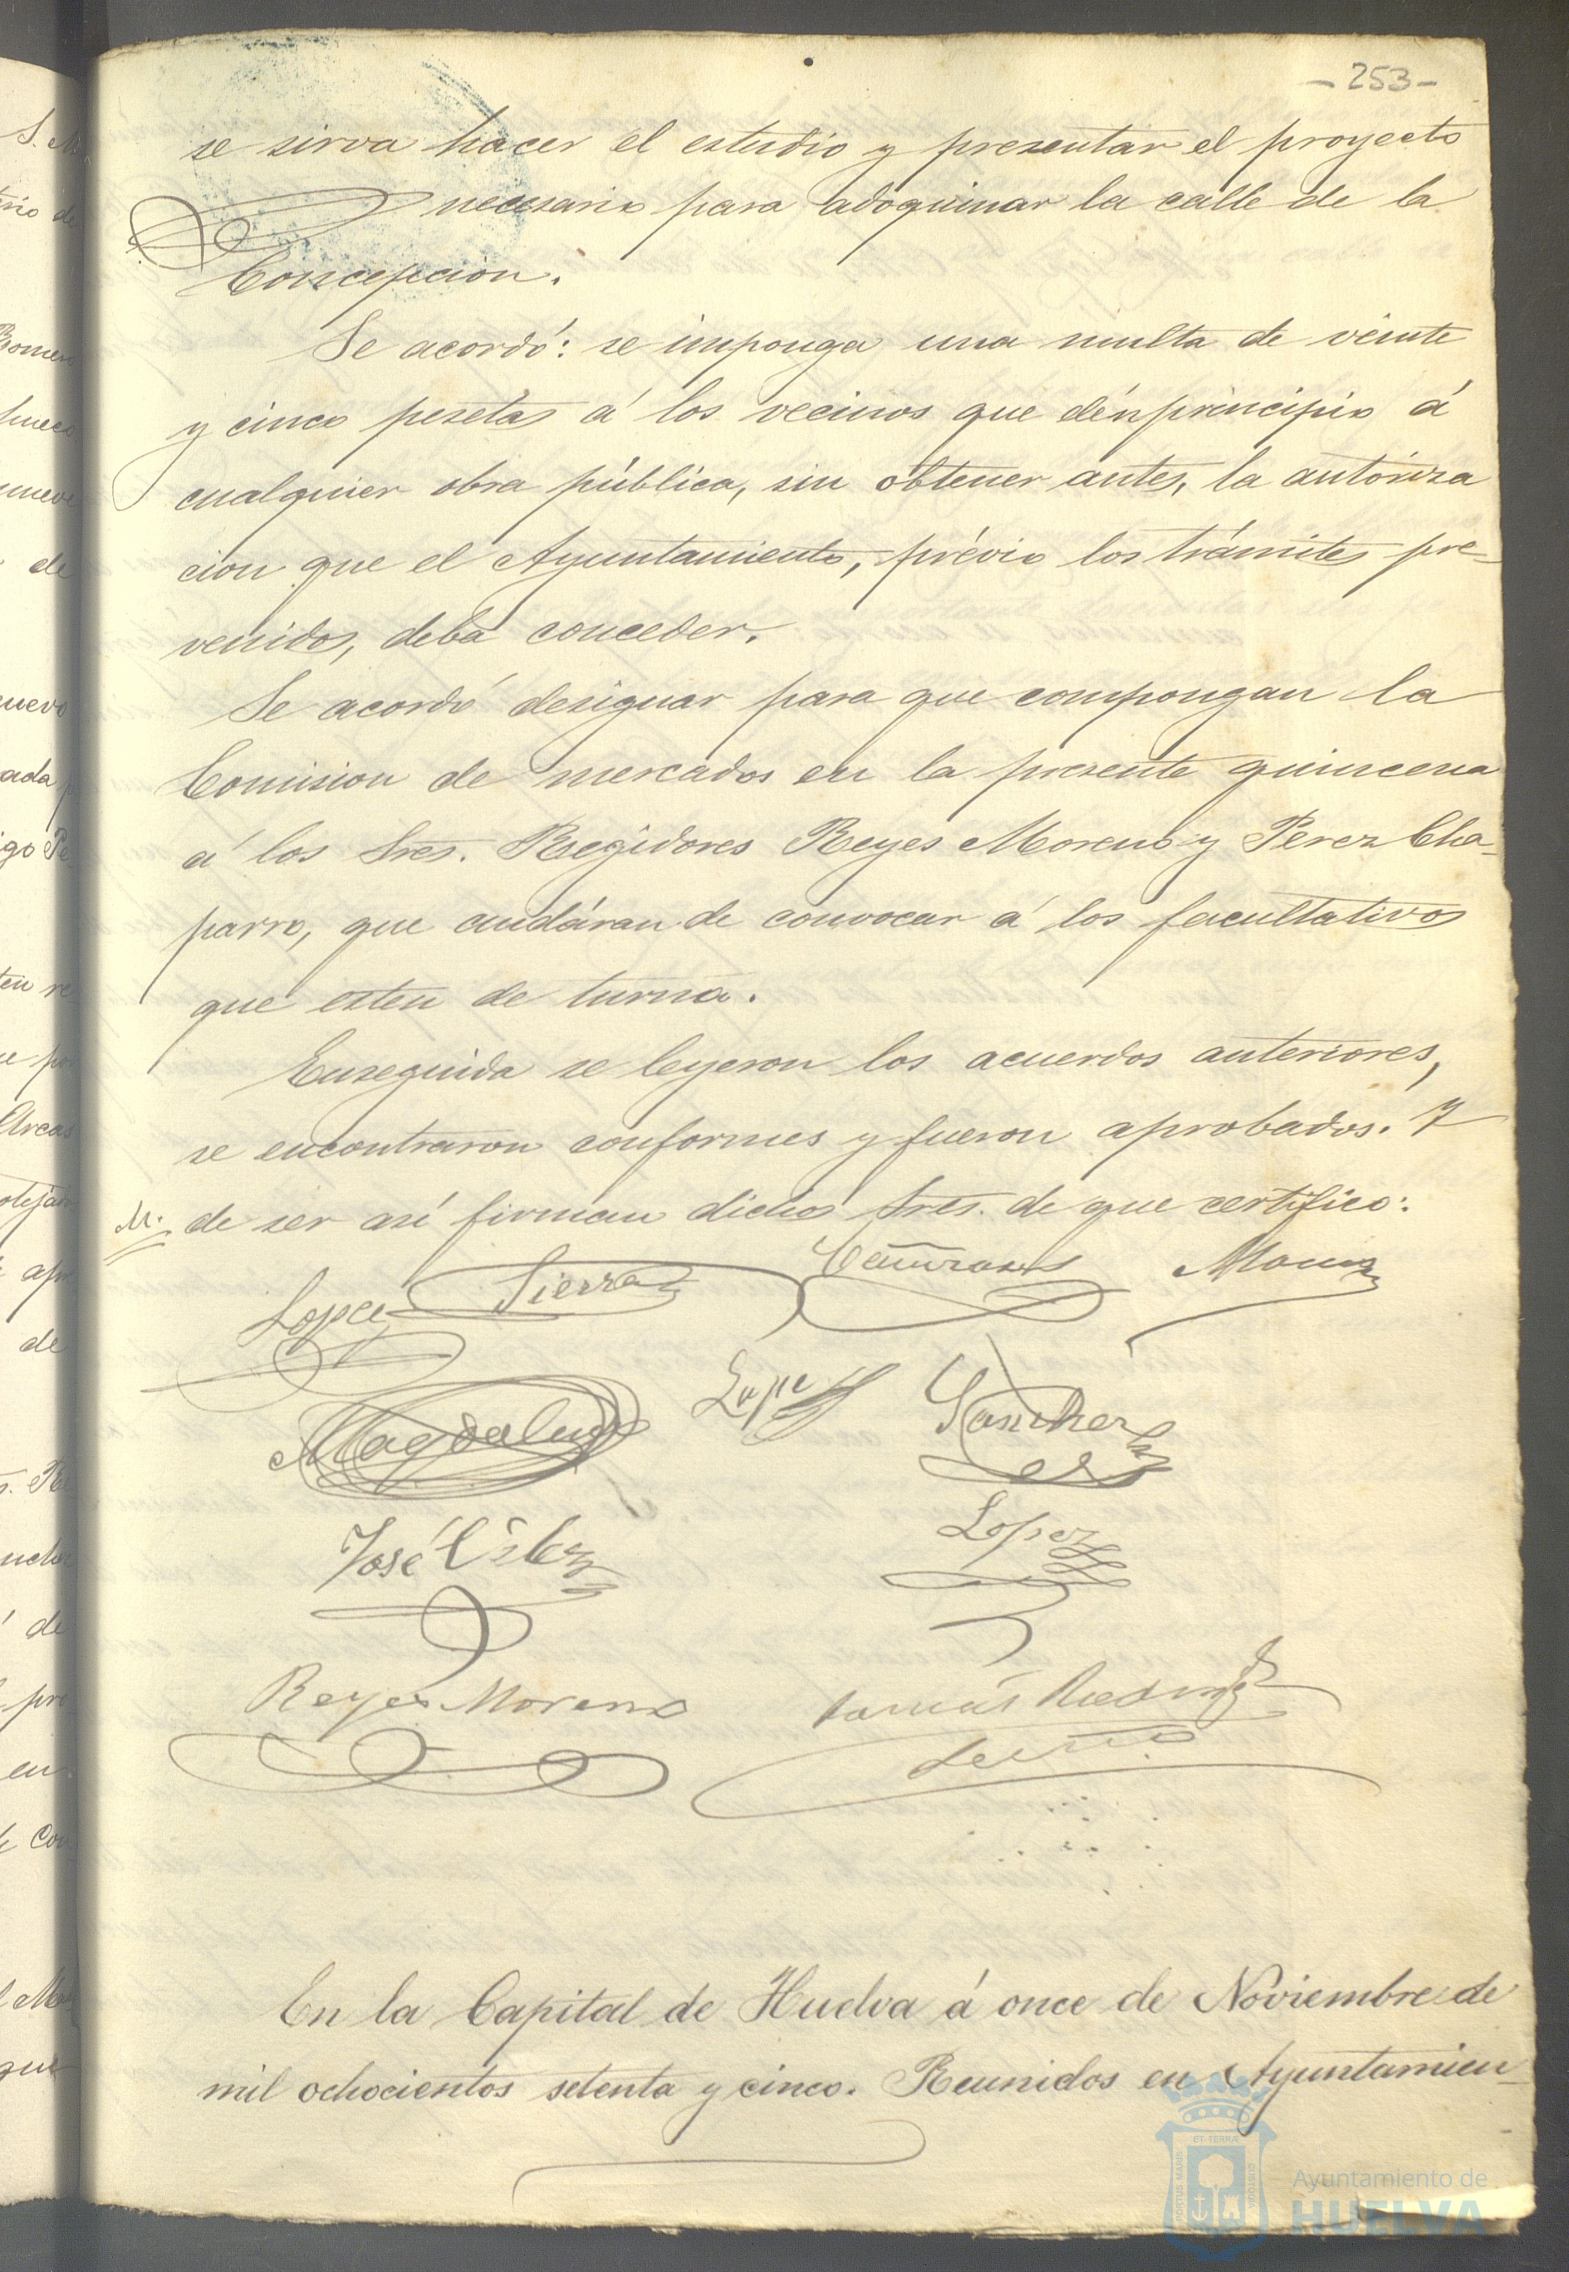 - 253 -
se sirva hacer el estudio y presentar el proyecto
necesario para adoquinar la calle de la
Concepcion.
Se acordó: se imponga una multa de veinte
y cinco pesetas á los vecinos que dén principio á
cualquier obra pública, sin obtener antes, la autoriza
cion que el Ayuntamiento, prévio los trámites pre-
venidos, deba conceder.
Se acordó designar para que compongan la
Comision de mercados en la presente quincena
á los Sres. Regidores Reyes Moreno y Perez Cha-
parro, que cuidáran de convocar á los facultativos
que esten de turno.
Enseguida se leyeron los acuerdos anteriores,
se encontraron conformes y fueron aprobados. Y
M. de ser así firman dichos Sres. de que certifico:
Lopez Sierra
Magdalena Lopez Sanchez
José Lopez
Reyes Moreno Tomás
En la Capital de Huelva á once de Noviembre de
mil ochocientos setenta y cinco. Reunidos en Ayuntamien-
PORTUS MARIS ET TERRAE CUSTODIA
Ayuntamiento de
HUELVA